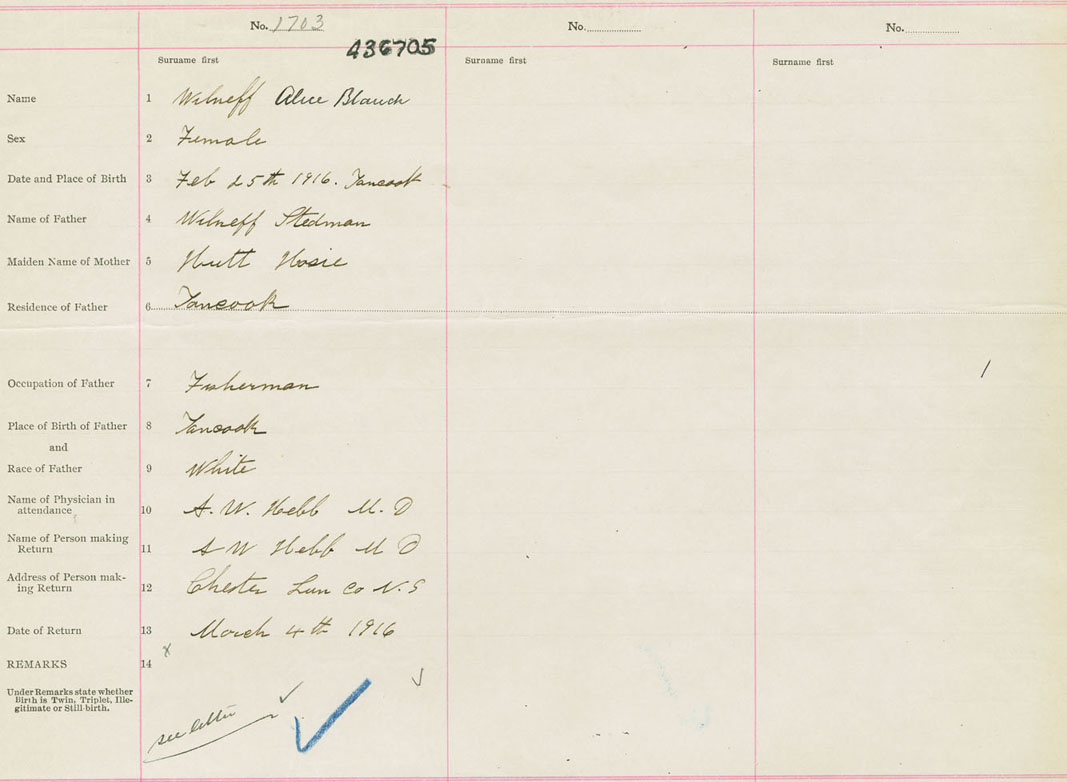 No. 1703 No. No.
436705
Surname first Surname first Surname first
Name 1 Wilneff Alice Blanch
Sex 2 Female
Date and Place of Birth 3 Feb 25th 1916. Tancook
Name of Father 4 Wilneff Stedman
Maiden Name of Mother 5 Hutt Hosie
Residence of Father 6 Tancook
Occupation of Father 7 Fisherman
Place of Birth of Father 8 Tancook
and
Race of Father 9 White
Name of Physician in
attendance 10 A. W. Hebb M. D
Name of Person making
Return 11 A W Hebb M D
Address of Person mak-
ing Return 12 Chester Lun Co N.S
Date of Return 13 March 4th 1916
REMARKS 14 x
Under Remarks state whether
Birth is Twin, Triplet, Ille-
gitimate or Still-birth.
see letter